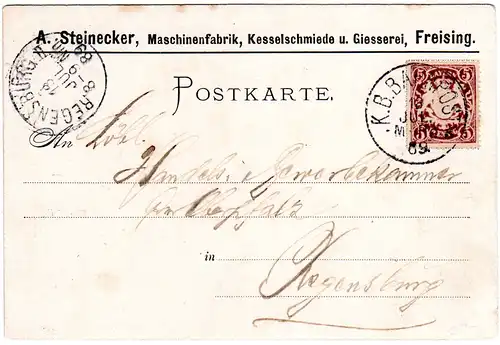 A. Steinecker, Maschinenfabrik, Kesselschmiede u. Giesserei, Freising.
REGENSBURG II.
8-9 NM.
JUL.
89
K.B.BAHNPOST
JUL
89
5 5
POSTKARTE.
An Löbl.
Handels u. Gewerbekammer
der Oberpfalz
in
Regensburg